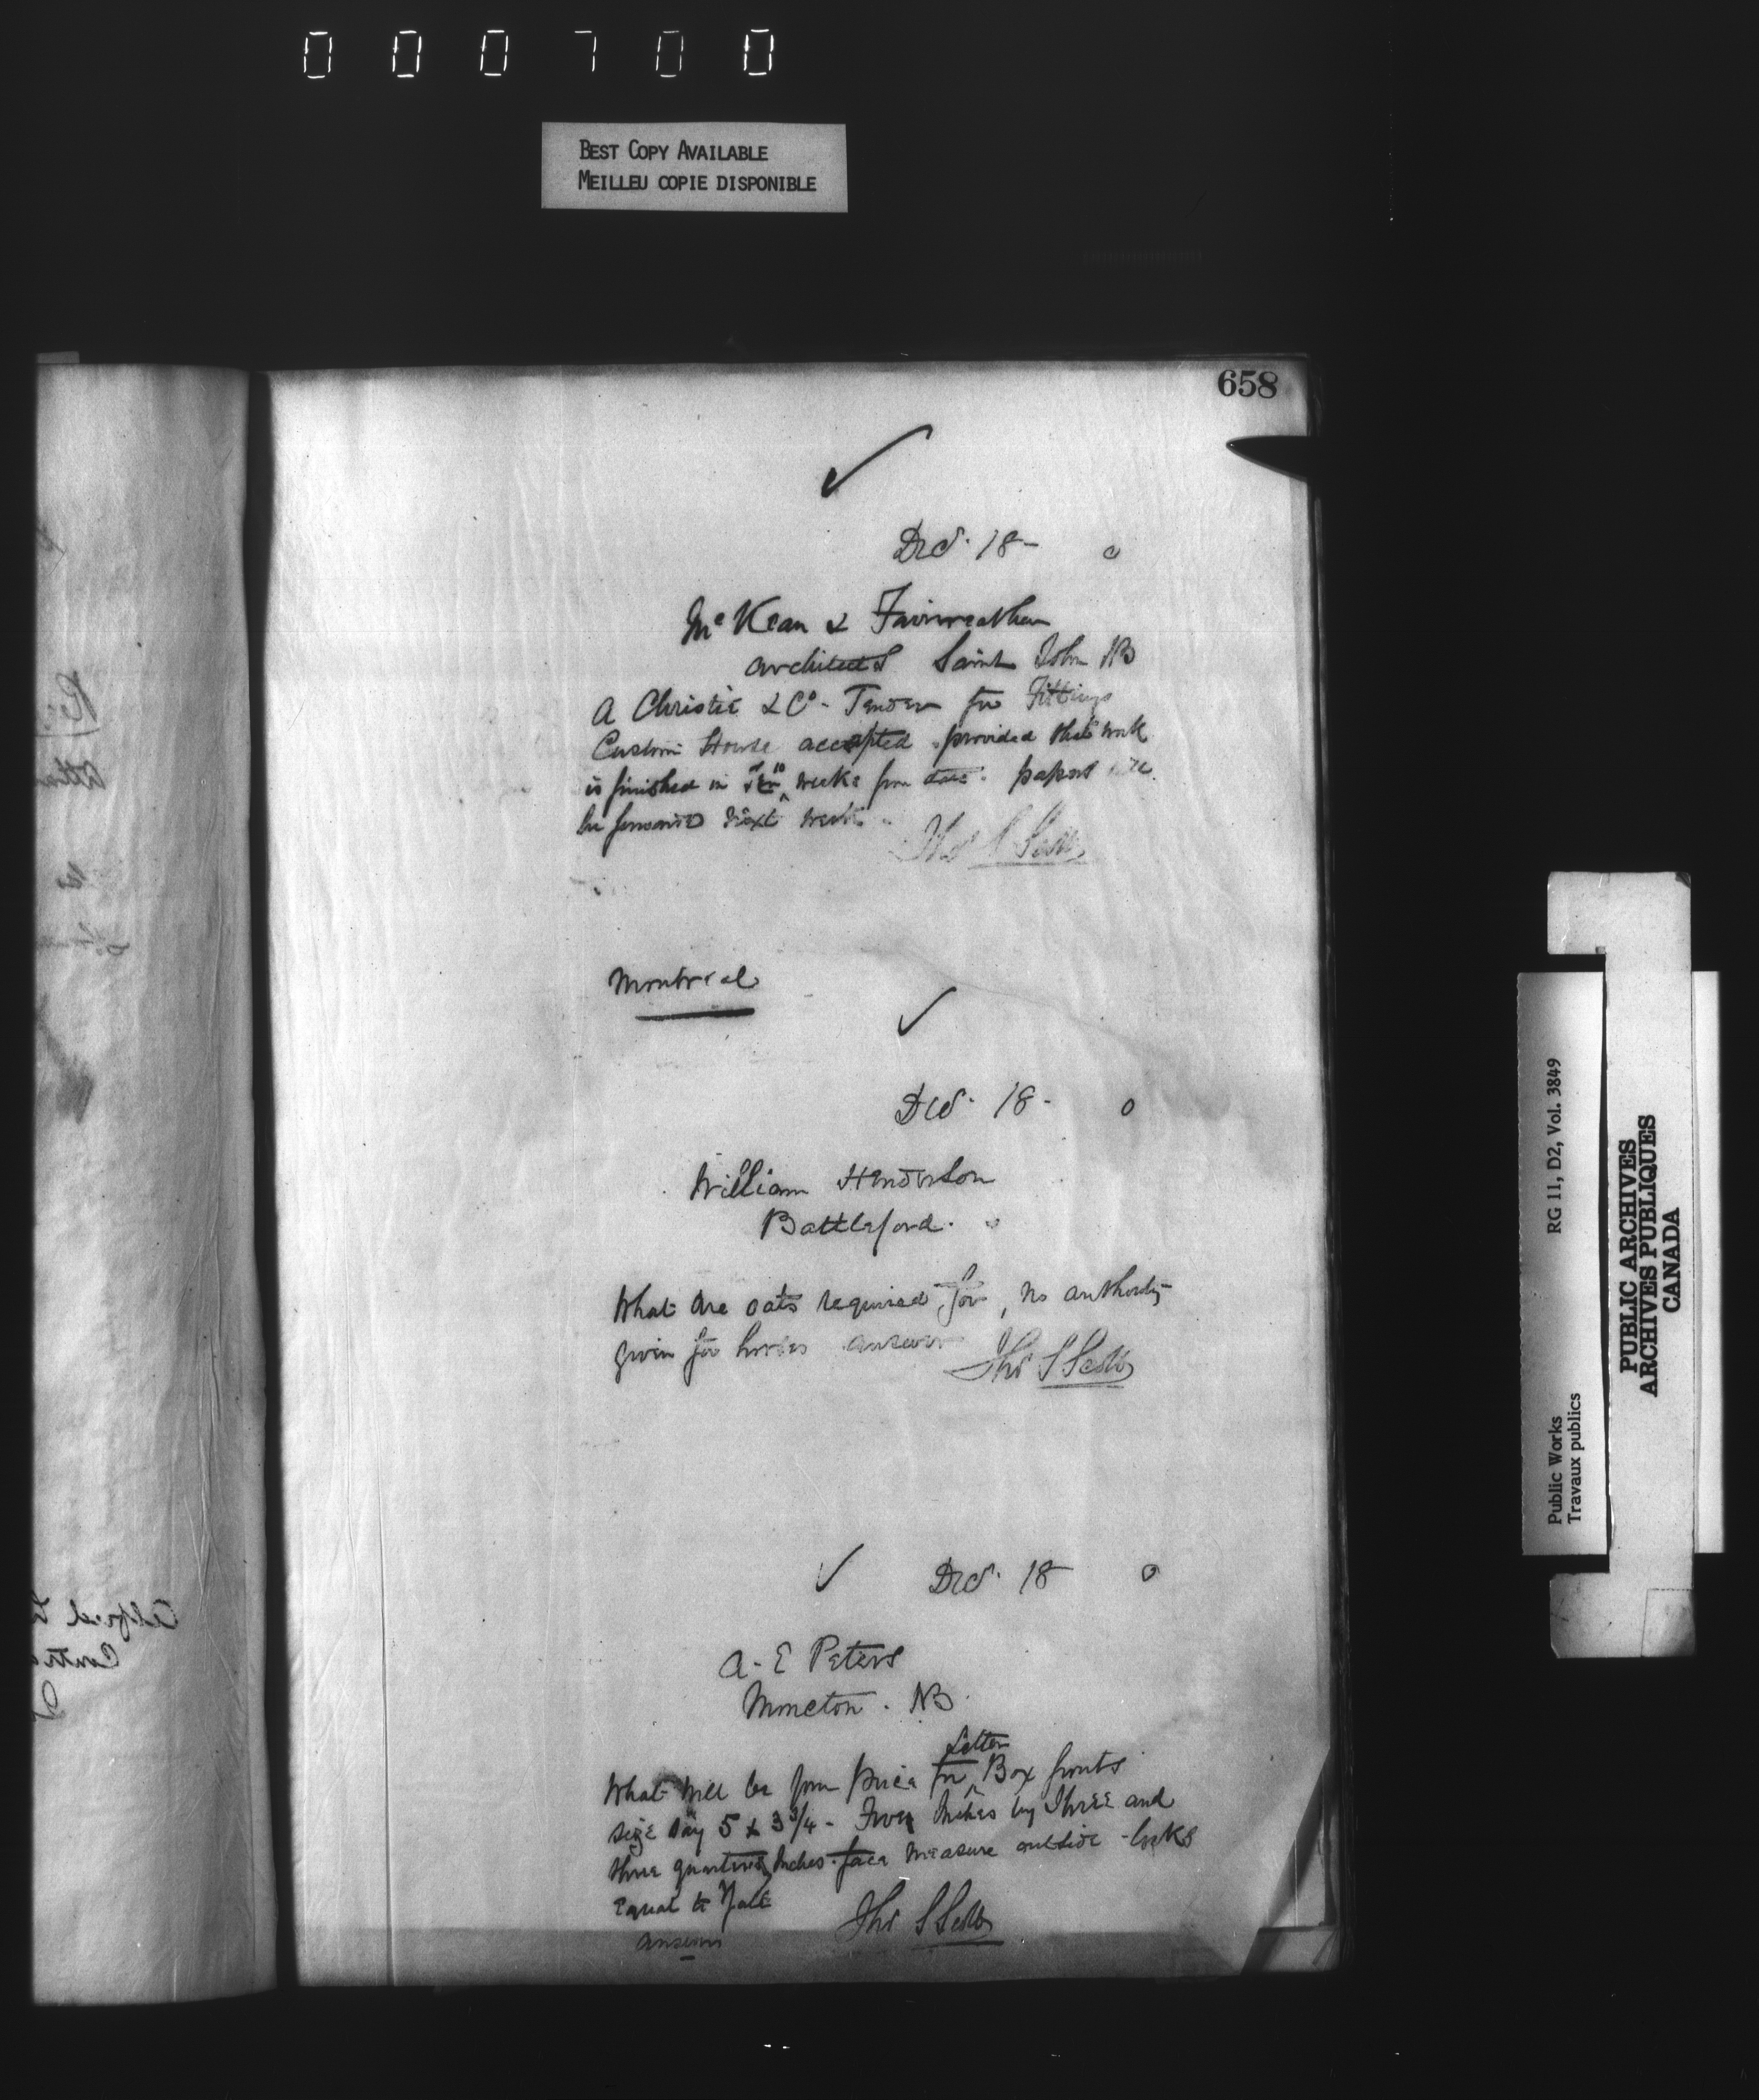 000700
BEST COPY AVAILABLE
MEILLEU COPIE DISPONIBLE
658
Dec. 18 -
McKean & Fairweather
Architects Saint John NB
A Christie & Co - Tender for Fittings
Custom House accepted provided that work
is finished in ten 10 weeks from date. papers will
be forwarded next week.
Thos S Scott
Montreal
Dec. 18 -
William Henderson
Battleford.
What are oats required for, no authority
given for horses answer
Thos S Scott
Dec. 18
A. E Peters
Moncton. NB.
Letter
What will be your price for Box fronts
size say 5 x 3 3/4 - Inches by Three and
three quarters Inches face measure outside - locks
equal to Yale
answer
Thos S Scott
Public Works
Travaux publics
RG 11, D2, Vol. 3849
PUBLIC ARCHIVES
ARCHIVES PUBLIQUES
CANADA